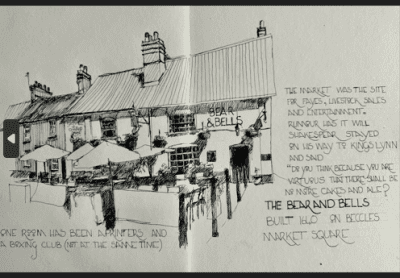 BEAR
& BELLS
THE MARKET WAS THE SITE
FOR FAYES, LIVESTOCK SALES
AND ENTERTAINMENT.
RUMOUR HAS IT WILL
SHAKESPEAR STAYED
ON HIS WAY TO KINGS LYNN
AND SAID
"DO YOU THINK BECAUSE YOU ARE
VIRTUOUS THAT THERE SHALL BE
NO MORE CAKES AND ALE?
THE BEAR AND BELLS
BUILT 1660 ON BECCLES
MARKET SQUARE
ONE ROOM HAS BEEN A PRINTERS AND
A BOXING CLUB (NOT AT THE SAME TIME)